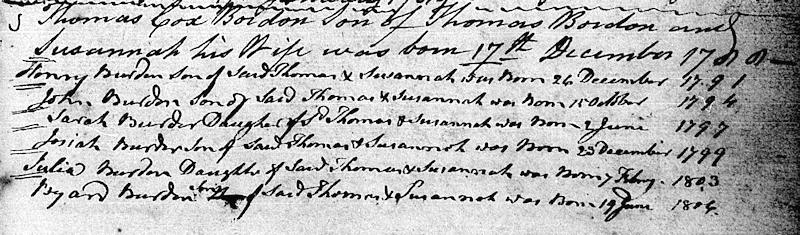 Thomas Cox Bordon Son of Thomas Bordon and
Susannah his Wife was born 17th December 1788
Henry Burden Son of Said Thomas & Susannah was Born 26 December 1791
John Burden Son of Said Thomas & Susannah was Born 15 October 1794
Sarah Burden Daughter of Sd Thomas & Susannah was Born 2 June 1797
Josiah Burden Son of Said Thomas & Susannah was Born 23 December 1799
Julia Burden Daughter of Said Thomas & Susannah was Born 7 Febry. 1803
Byard Burden of Said Thomas & Susannah was Born 19 June 1806.